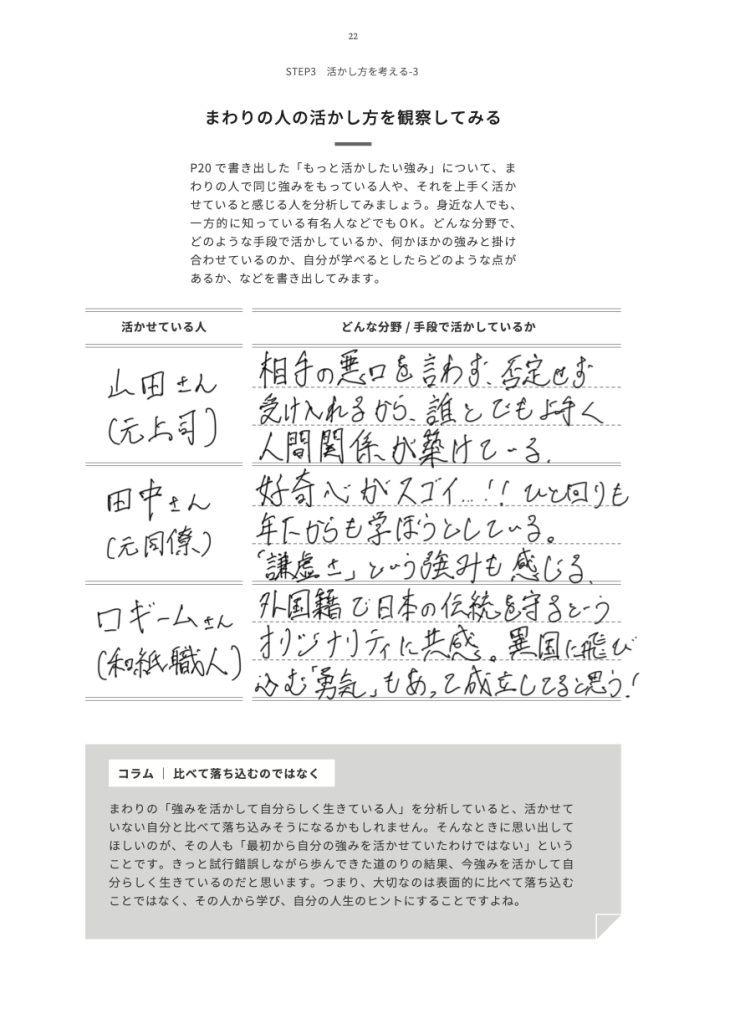 22
STEP3 活かし方を考える-3
まわりの人の活かし方を観察してみる
P20 で書き出した「もっと活かしたい強み」について、ま
わりの人で同じ強みをもっている人や、それを上手く活か
せていると感じる人を分析してみましょう。身近な人でも、
一方的に知っている有名人などでもOK。どんな分野で、
どのような手段で活かしているか、何かほかの強みと掛け
合わせているのか、自分が学べるとしたらどのような点が
あるか、などを書き出してみます。
活かせている人
どんな分野 / 手段で活かしているか
山田さん
(元上司)
相手の悪口を言わず、否定せず
受け入れるから、誰とでも上手く
人間関係が築けている。
田中さん
(元同僚)
好奇心がスゴイ…!! ひと回りも
年下からも学ぼうとしている。
「謙虚さ」という強みも感じる。
ロギールさん
(和紙職人)
外国籍で日本の伝統を守るという
オリジナリティに共感。異国に飛び
込む「勇気」もあって成立してると思う!
コラム | 比べて落ち込むのではなく
まわりの「強みを活かして自分らしく生きている人」を分析していると、活かせて
いない自分と比べて落ち込みそうになるかもしれません。そんなときに思い出して
ほしいのが、その人も「最初から自分の強みを活かせていたわけではない」という
ことです。きっと試行錯誤しながら歩んできた道のりの結果、今強みを活かして自
分らしく生きているのだと思います。つまり、大切なのは表面的に比べて落ち込む
ことではなく、その人から学び、自分の人生のヒントにすることですよね。